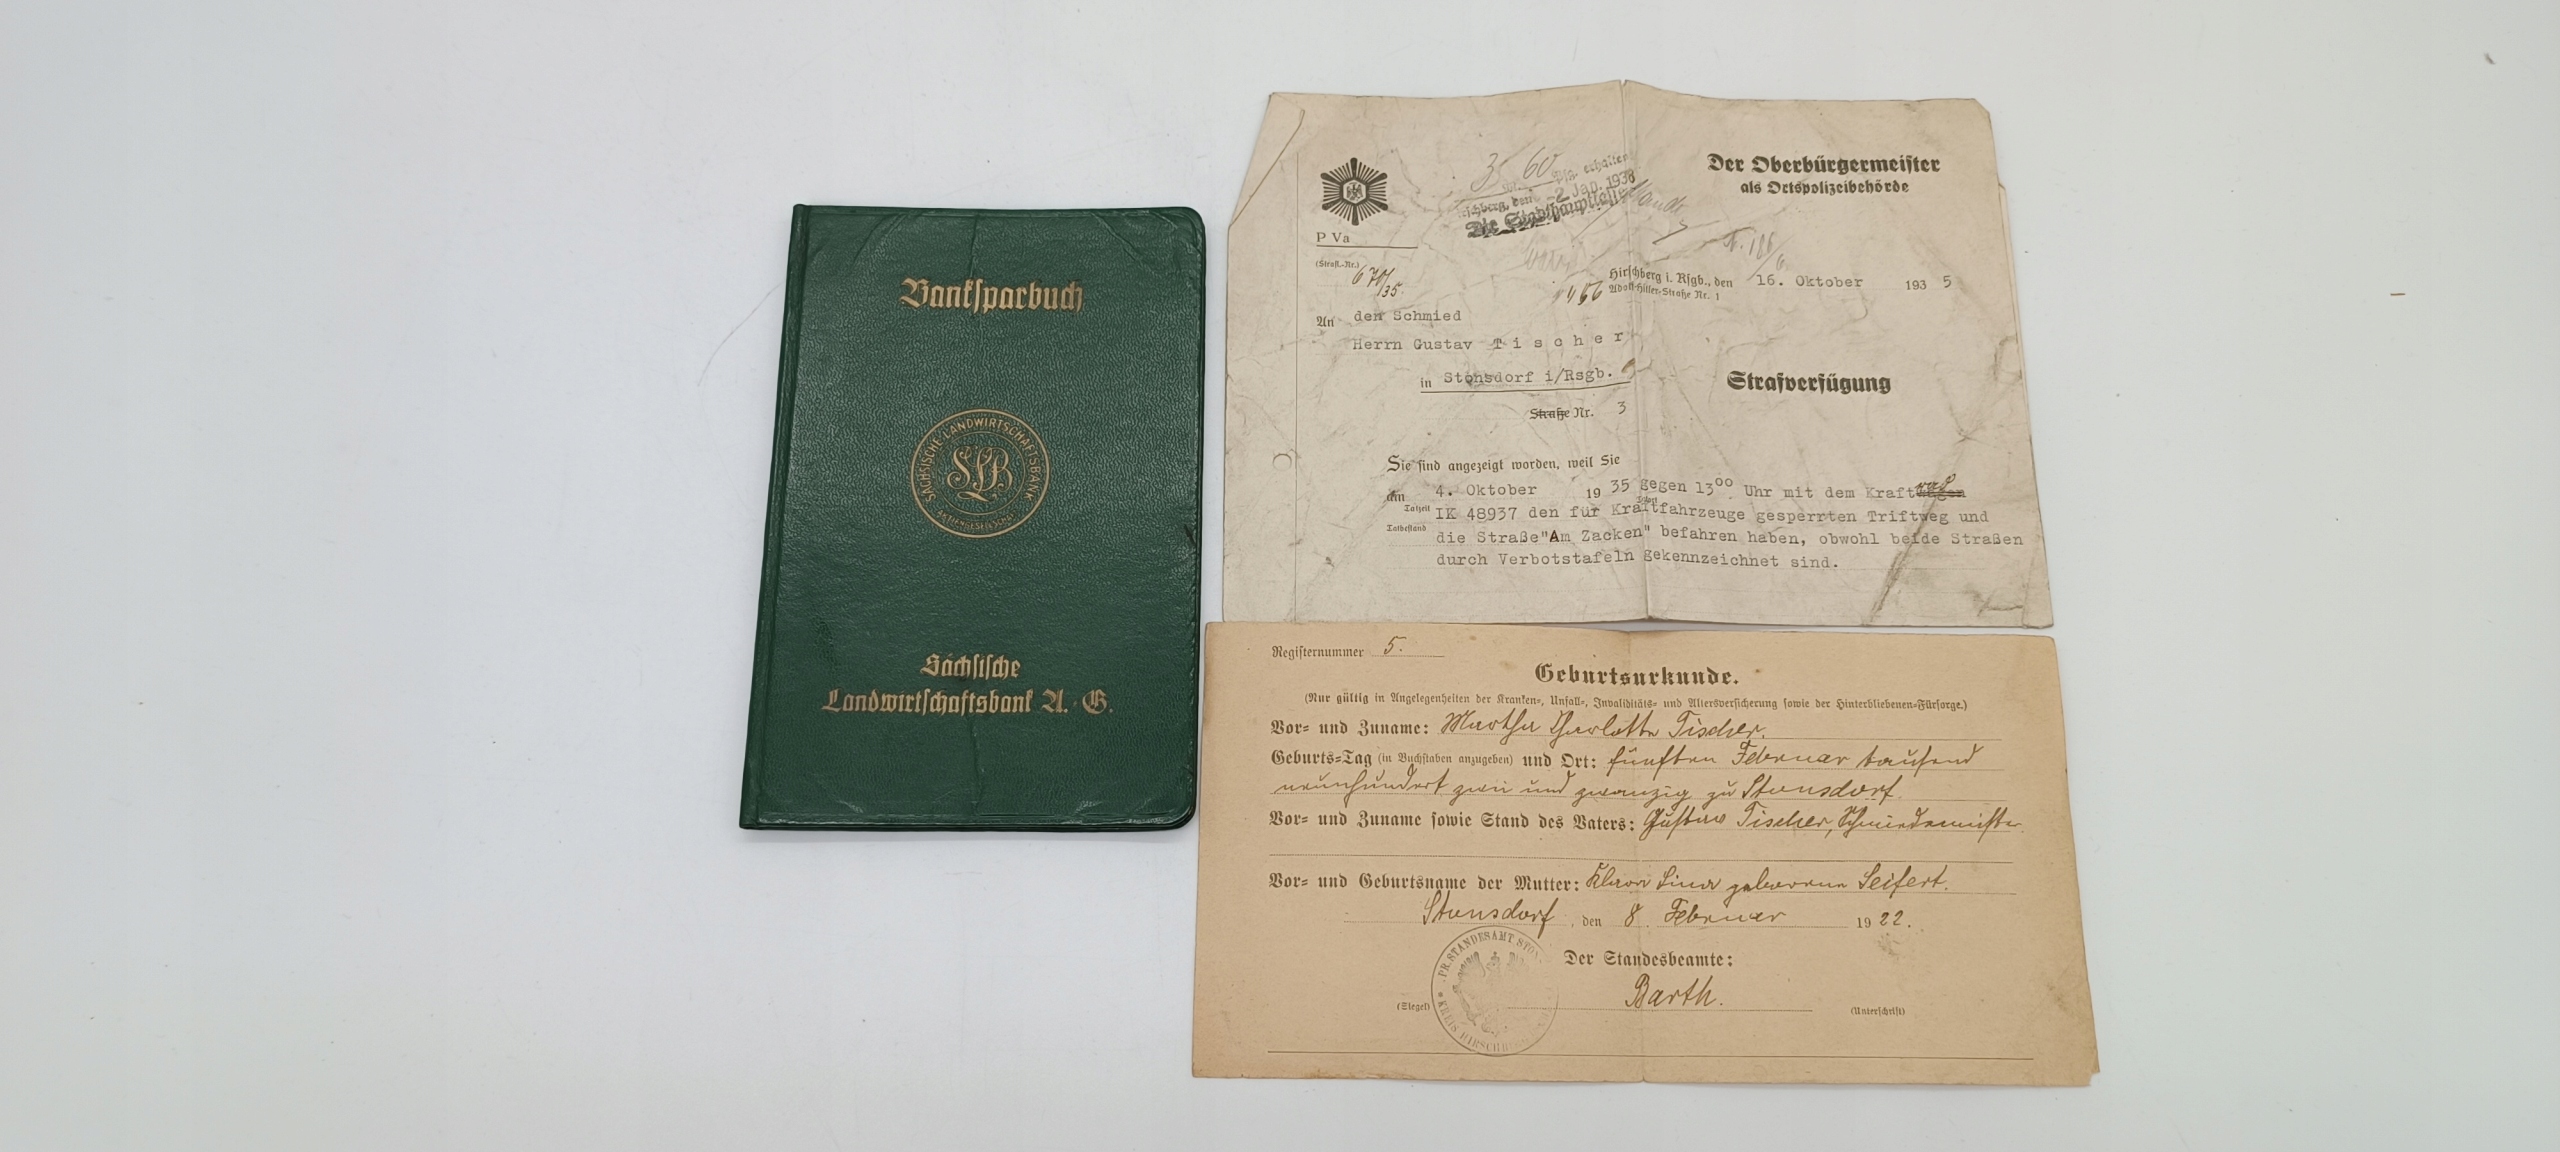 Banksparbuch
SÄCHSISCHE LANDWIRTSCHAFTSBANK
SLB
AKTIENGESELLSCHAFT
Sächsische
Landwirtschaftsbank A. G.
Der Oberbürgermeister
als Ortspolizeibehörde
3 60 Pfg. erhalten
2. Jan. 1936
Die Stadthauptkasse
P Va
(Strafl.-Nr.)
670/35.
Hirschberg i. Rsgb., den 16. Oktober 193 5
Adolf-Hitler-Straße Nr. 1
An den Schmied
Herrn Gustav Tischer
in Stonsdorf i/Rsgb.
Straße Nr. 3
Strafverfügung
Sie sind angezeigt worden, weil Sie
am 4. Oktober 19 35 gegen 13⁰⁰ Uhr mit dem Kraftrad
Tatzeit Tatort
IK 48937 den für Kraftfahrzeuge gesperrten Triftweg und
Tatbestand
die Straße "Am Zacken" befahren haben, obwohl beide Straßen
durch Verbotstafeln gekennzeichnet sind.
Registernummer 5.
Geburtsurkunde.
(Nur gültig in Angelegenheiten der Kranken-, Unfall-, Invaliditäts- und Altersversicherung sowie der Hinterbliebenen-Fürsorge.)
Vor- und Zuname: Martha Charlotte Tischer.
Geburts-Tag (in Buchstaben anzugeben) und Ort: fünften Februar tausend
neunhundert zwei und zwanzig zu Stonsdorf.
Vor- und Zuname sowie Stand des Vaters: Gustav Tischer, Schmiedemeister
Vor- und Geburtsname der Mutter: Klara Lina geborene Seifert.
Stonsdorf, den 8. Februar 1922.
PR. STANDESAMT
KREIS HIRSCHBERG
Der Standesbeamte:
Barth.
(Siegel) (Unterschrift)